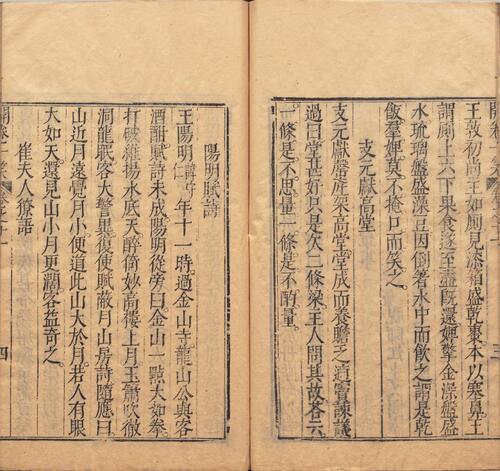 王敦初尚主如厠見漆箱盛乾棗本以塞鼻王
謂厠上亦下果食遂至盡旣還婢擎金澡盤盛
水琉璃盤盛澡豆因倒著水中而飲之謂是乾
飯羣婢莫不掩口而笑之
支元獻高堂
支元獻罄庇架高堂堂成而養贍之酒賓諫議
過曰堂甚好只是欠二條梁王人問其故答云
一條是不思量一條是不酌量
三
陽明賦詩
王陽明諱守仁年十一時過金山寺龍山公與客
酒酣賦詩未成陽明從旁曰金山一點大如拳
打破維揚水底天醉倚妙高樓上月玉簫吹徹
洞龍眠客大驚異復使賦蔽月山房詩隨應曰
山近月遠覺月小便道此山大於月若人有眼
大如天還見山小月更濶客益奇之
崔夫人療語
開卷一笑 卷之十一 四